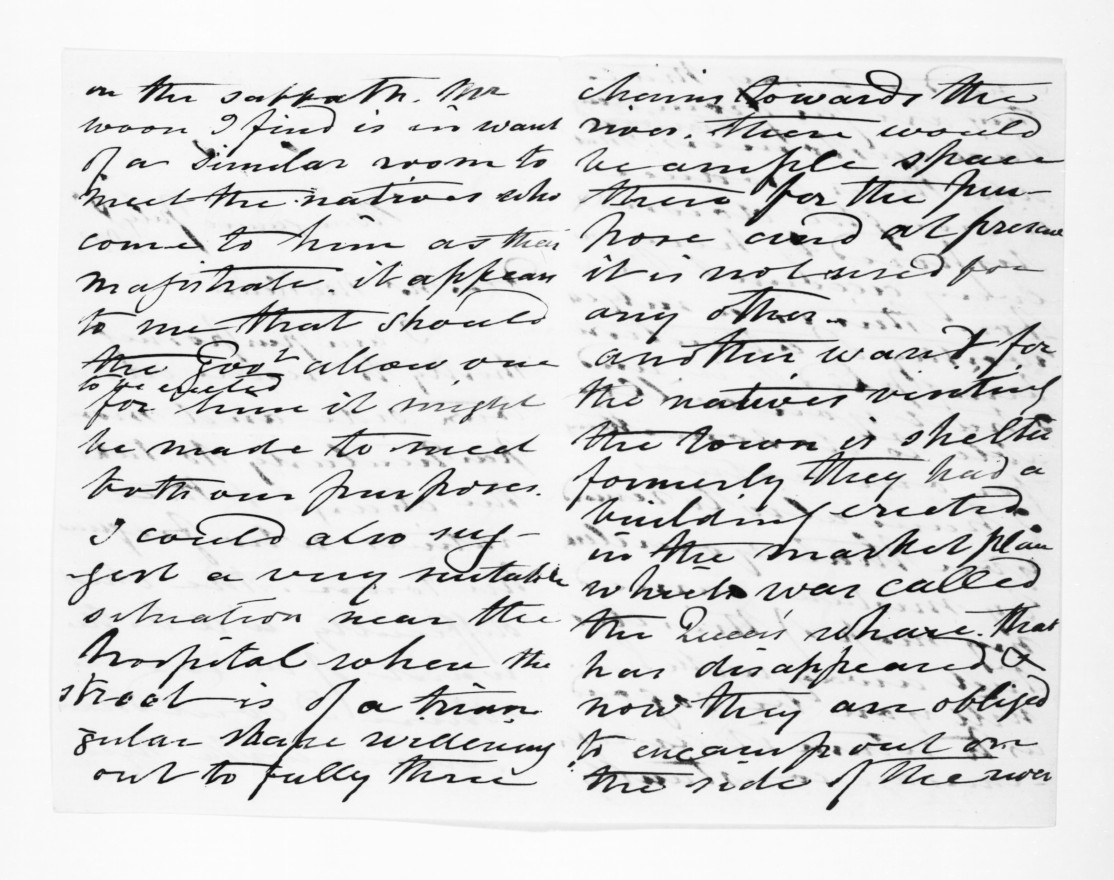 on the sabbath. Mr
woon I find is in want
of a similar room to
meet the natives who
come to him as their
magistrate. it appears
to me that should
the Govt allow one
to be erected
for him it might
be made to meet
both our purposes.
I could also sug-
gest a very suitable
situation near the
hospital where the
street is of a trian
gular shape widening
out to fully three
chains towards the
river. there would
be ample space
there for the pur-
pose and at present
it is not used for
any other.
another want for
the natives visiting
the town is shelter
formerly they had a
building erected
in the market place
which was called
the Queen's whare. that
has disappeared &
now they are obliged
to encamp out on
the side of the river